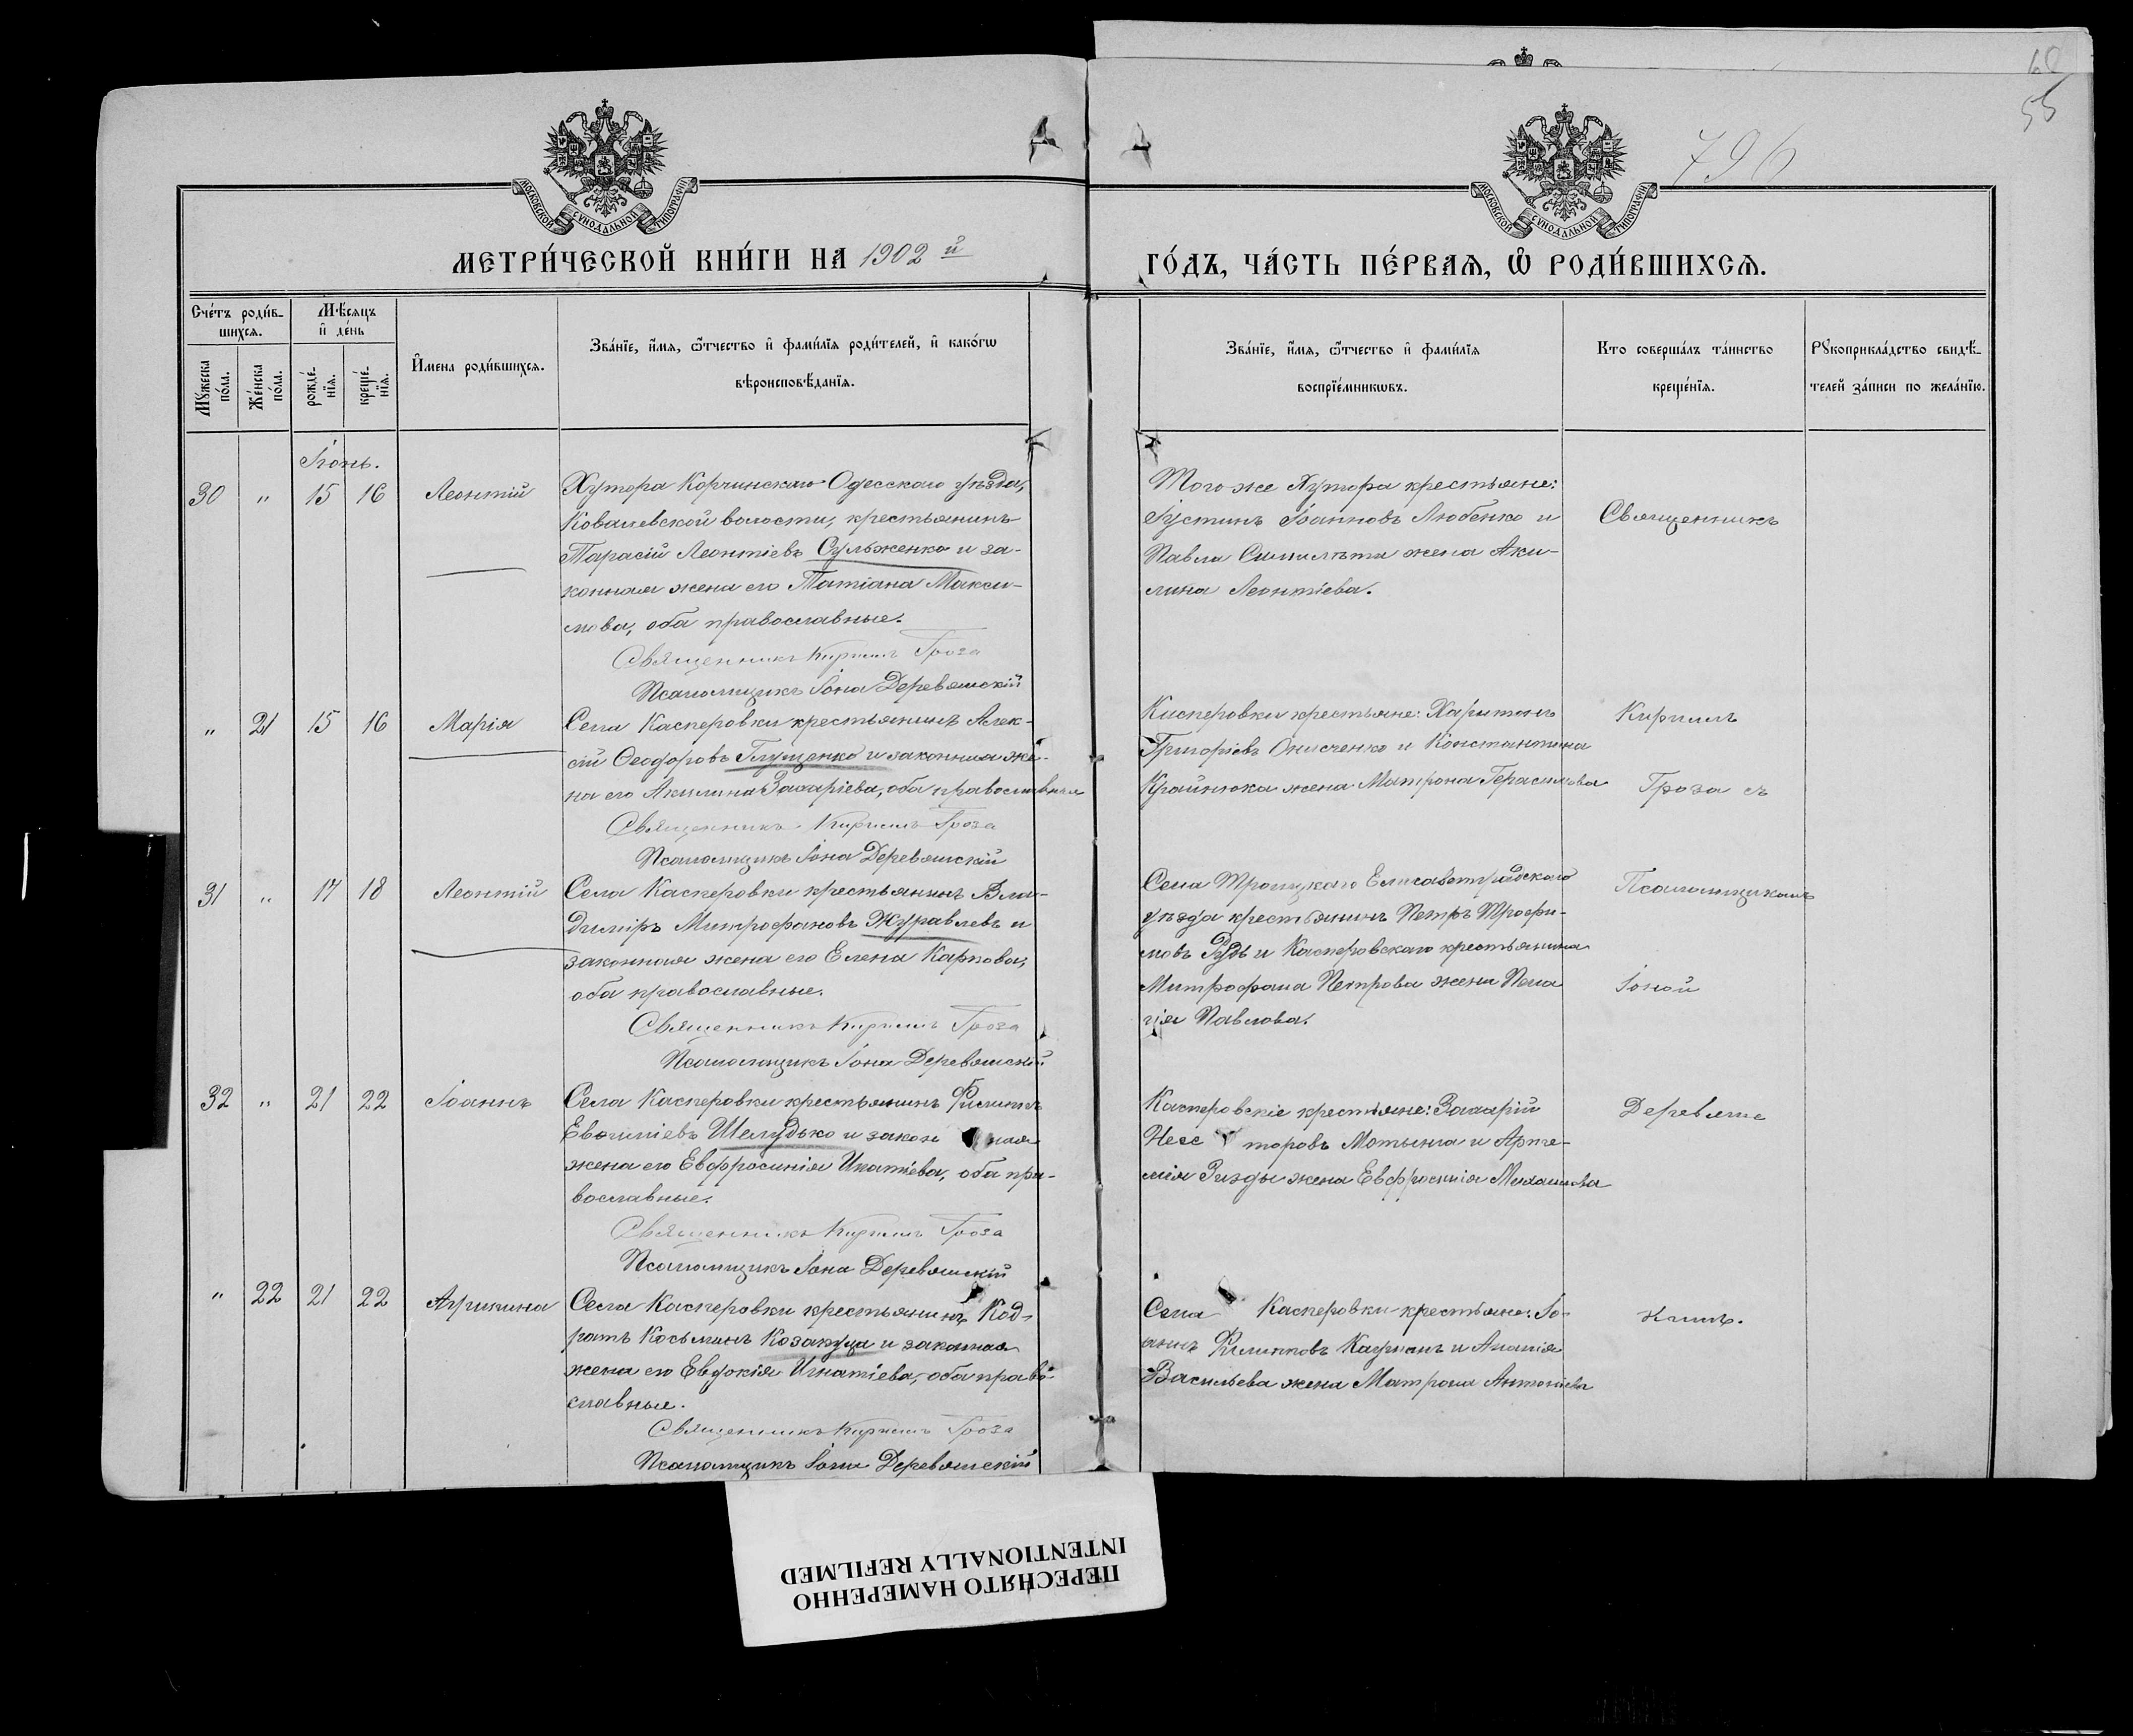 60
55
796
МОСКОВСКОЙ СѴНОДАЛЬНОЙ ТИПОГРАФІИ
МОСКОВСКОЙ СѴНОДАЛЬНОЙ ТИПОГРАФІИ
МЕТРИ́ЧЕСКОЙ КНИ́ГИ НА 1902 й
ГО́ДЪ, ЧА́СТЬ ПЕ́РВАѦ, Ѽ РОДИ́ВШИХСѦ.
Сче́тъ роди́в-
шихсѧ.
Мꙋжеска по́ла.
Же́нска по́ла.
Мѣ́сѧцъ
и҆ де́нь
рожде́-
нїѧ.
креще́-
нїѧ.
И҆мена роди́вшихсѧ.
Зва́нїе, и҆́мѧ, ѻ҆́тчество и҆ фами́лїѧ роди́телей, и҆ како́гѡ
вѣроисповѣ́данїѧ.
Зва́нїе, и҆́мѧ, ѻ҆́тчество и҆ фами́лїѧ
воспрїе́мникѡвъ.
Кто соверша́лъ та́инство
креще́нїѧ.
Рꙋкоприкла́дство свидѣ́-
телей за́писи по жела́нїю.
Іюнь.
30 " 15 16 Леонтій
Хутора Корчинскаго Одесскаго уѣзда,
Ковалевской волости, крестьянинъ
Тарасій Леонтіевъ Сульженко и за-
конная жена его Татіана Макси-
мова, оба православные.
Священникъ Кириллъ Гроза
Псаломщикъ Іона Деревянскій
Того же Хутора крестьяне:
Іустинъ Іоанновъ Любенко и
Павла жена Аки-
лина Леонтіева.
Священникъ
" 21 15 16 Марія
Села Касперовки крестьянинъ Алек-
сій Ѳеодоровъ Глущенко и законная же-
на его Акилина Захаріева, оба православные
Священникъ Кириллъ Гроза
Псаломщикъ Іона Деревянскій
Касперовки крестьяне: Харитонъ
Григоріевъ Онисченко и Константина
Крайнюка жена Матрона Герасимова
Кириллъ
Гроза съ
31 " 17 18 Леонтій
Села Касперовки крестьянинъ Вла-
диміръ Митрофановъ Журавлевъ и
законная жена его Елена Карпова,
оба православные.
Священникъ Кириллъ Гроза
Псаломщикъ Іона Деревянскій
Села Троицкаго Елисаветградскаго
уѣзда крестьянинъ Петръ Трофи-
мовъ Рудь и Касперовскаго крестьянина
Митрофана Петрова жена Пела
гія Павлова.
Псаломщикомъ
Іоной
32 " 21 22 Іоаннъ
Села Касперовки крестьянинъ Филиппъ
Евѳиміевъ Шелудько и закон ная
жена его Евфросинія Игнатіева, оба пра-
вославные.
Священникъ Кириллъ Гроза
Псаломщикъ Іона Деревянскій
Касперовскіе крестьяне: Захарій
Нес торовъ Мотынга и Арте-
мія жена Евфросинія Михаилова
Деревянс
" 22 21 22 Агрипина
Села Касперовки крестьянинъ Код-
ратъ Косьминъ Козакуца и законная
жена его Евдокія Игнатіева, оба право-
славные.
Священникъ Кириллъ Гроза
Псаломщикъ Іона Деревянскій
Села Касперовки крестьяне: Іо-
аннъ Филипповъ и Ананія
Васильева жена Матрона Антоніева
кимъ.
ПЕРЕСНЯТО НАМЕРЕННО
INTENTIONALLY REFILMED